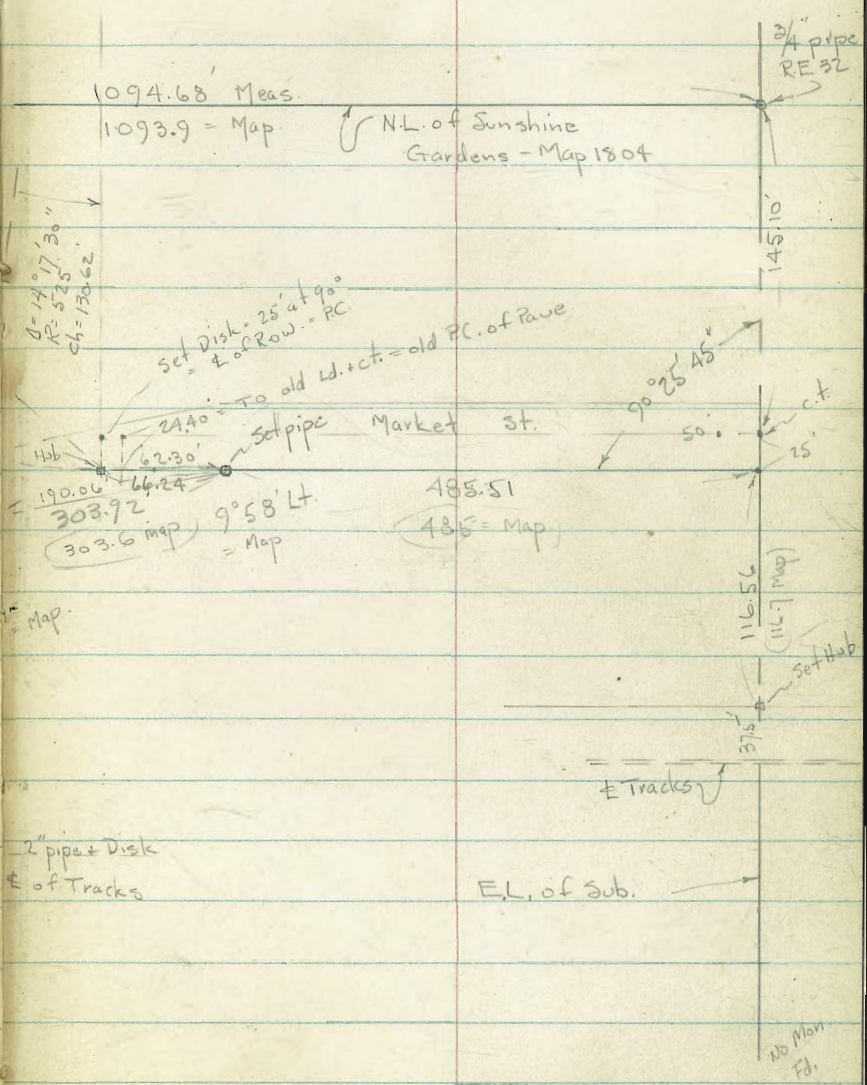 3/4" pipe
R.E. 32
1094.68' Meas.
1093.9 = Map
N.L. of Sunshine
Gardens - Map 1804
145.10'
Δ = 14° 17' 30"
R = 525'
Ch = 130.62'
Set Disk = 25' at 90°
= ℄ of Row. = P.C.
24.40' = To old Ld. & ct. = old P.C. of Pave
Set pipe
Market St.
90° 25' 45"
c.t.
50'
25'
Hub
62.30'
66.24
= 190.06
303.92'
303.6 map
9° 58' Lt.
= Map
485.51
485 = Map
116.56
(116.7 Map)
= Map.
Set Hub
37.5'
℄ Tracks
2" pipe & Disk
℄ of Tracks
E.L. of Sub.
No Mon.
Fd.